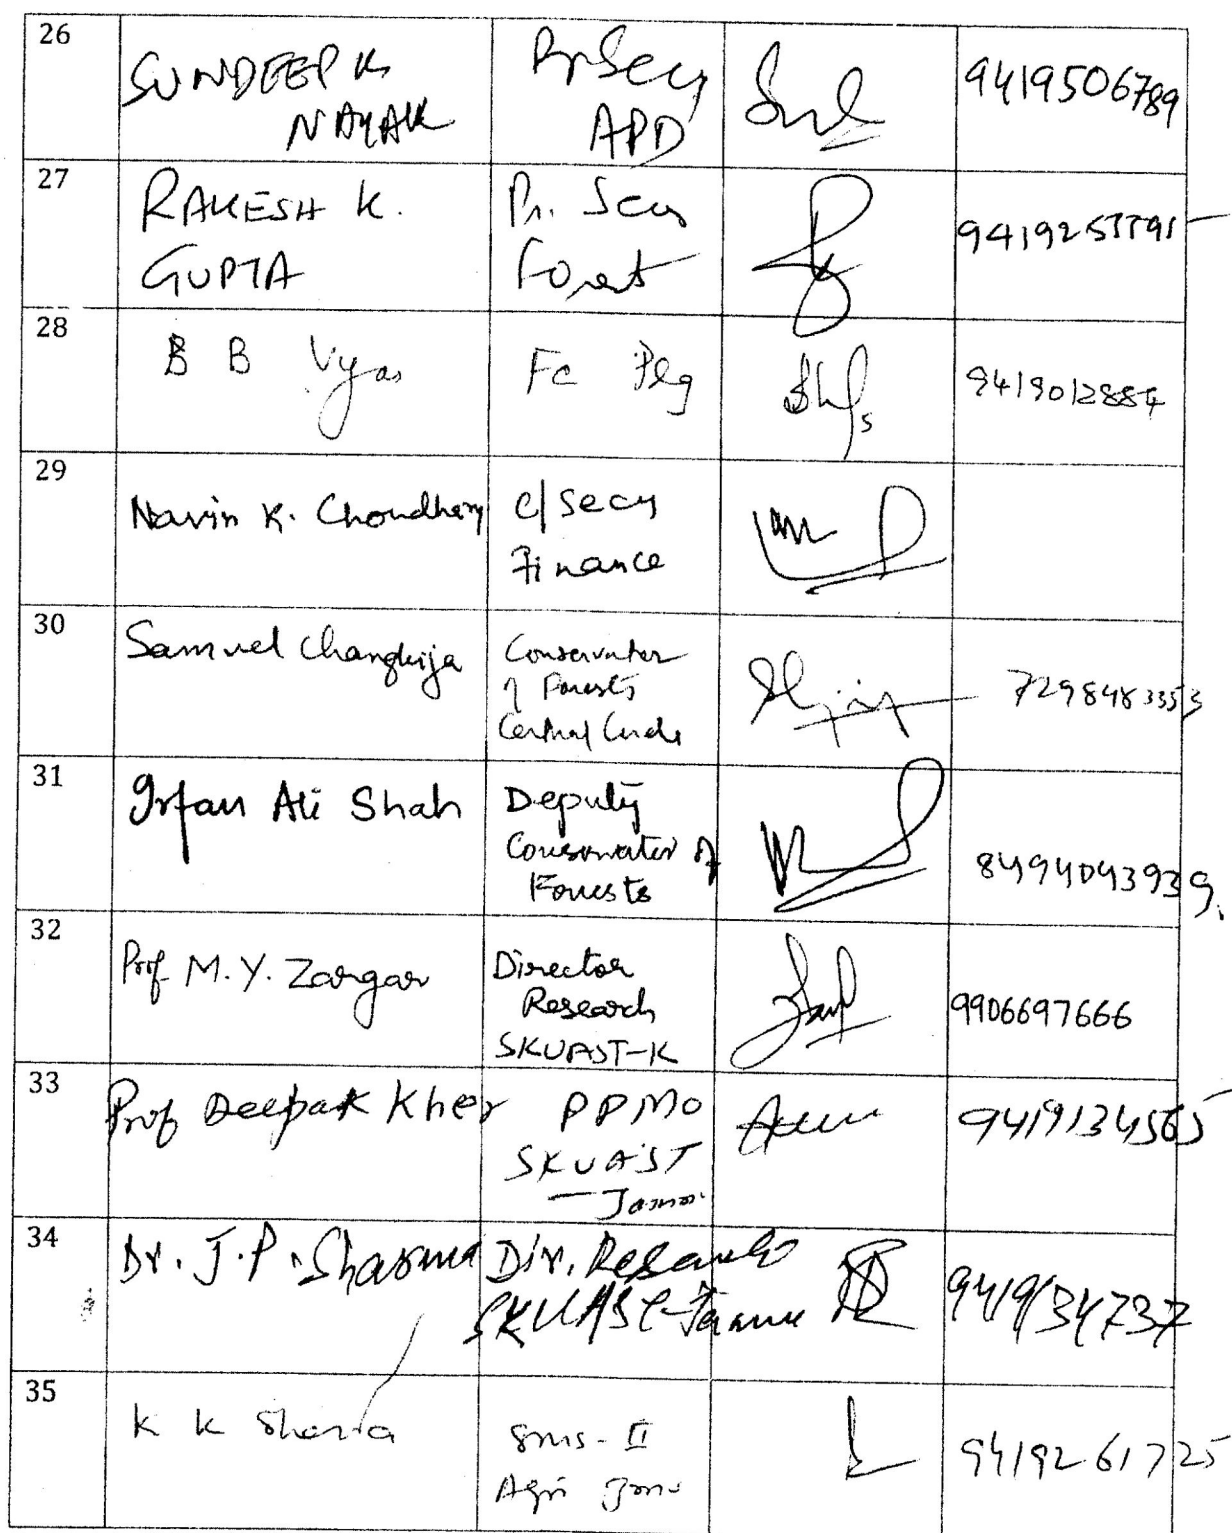 26
SUNDEEP K
NAYAK
Pr Secy
APD
9419506789
27
RAKESH K.
GUPTA
Pr. Secy
Forest
28
B B Vyas
Fc Plg
9419012884
29
Navin K. Choudhary
c/secy
Finance
30
Samuel Changkija
Conservator
of Forests
Central Circle
7298483353
31
Irfan Ali Shah
Deputy
Conservator of
Forests
8494043939.
32
Prof M.Y. Zargar
Director
Research
SKUAST-K
9906697666
33
Prof Deepak Kher
PPMO
SKUAST
- Jammu
9419134565
34
Dr. J.P. Sharma
Dir. Research
SKUAST-Jammu
9419134737
35
K K Sharma
SMS-II
Agri Jmu
9419261725